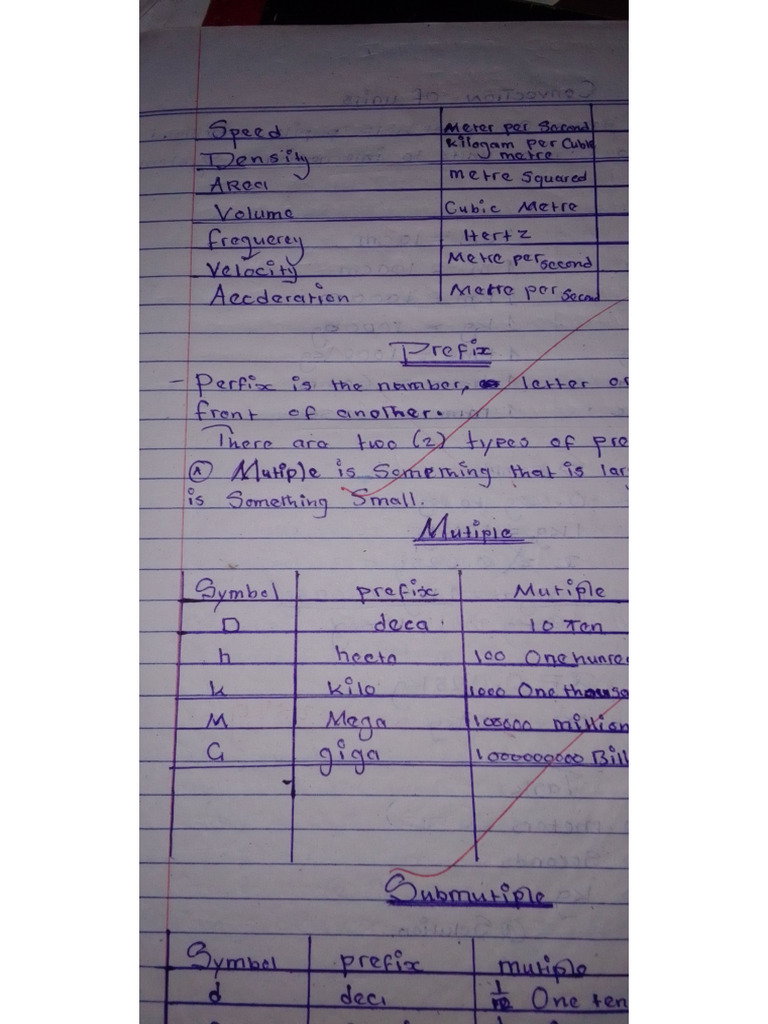 Speed Meter per Second
Density Kilogam per Cubic metre
Area metre Squared
Volume Cubic Metre
frequerey Hertz
Velocity Metre per second
Aecderation Metre per Secon
Prefix
- Perfix is the namber, letter or
front of another.
There are two (2) types of pre
(A) Mutiple is Something that is lar
is Something Small.
Mutiple
Symbol prefix Mutiple
D deca 10 Ten
h hecto 100 One hunre
k kilo 1000 One thousa
M Mega million
G giga 1000000000 Bill
Submutiple
Symbol prefix mutiple
d deci 1/10 One ten